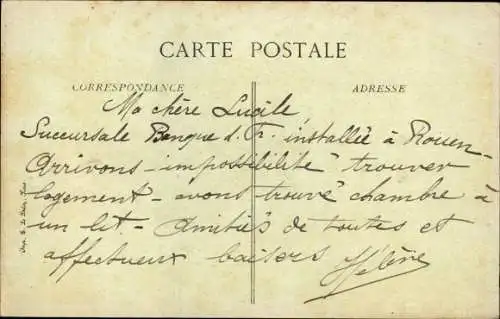 CARTE POSTALE
CORRESPONDANCE
ADRESSE
Ma chère Lucile
Succursale Banque d. Fr. installée à Rouen -
Arrivons - impossibilité trouver
logement - avons trouvé chambre à
un lit - Amitiés de toutes et
affectueux baisers Hélène